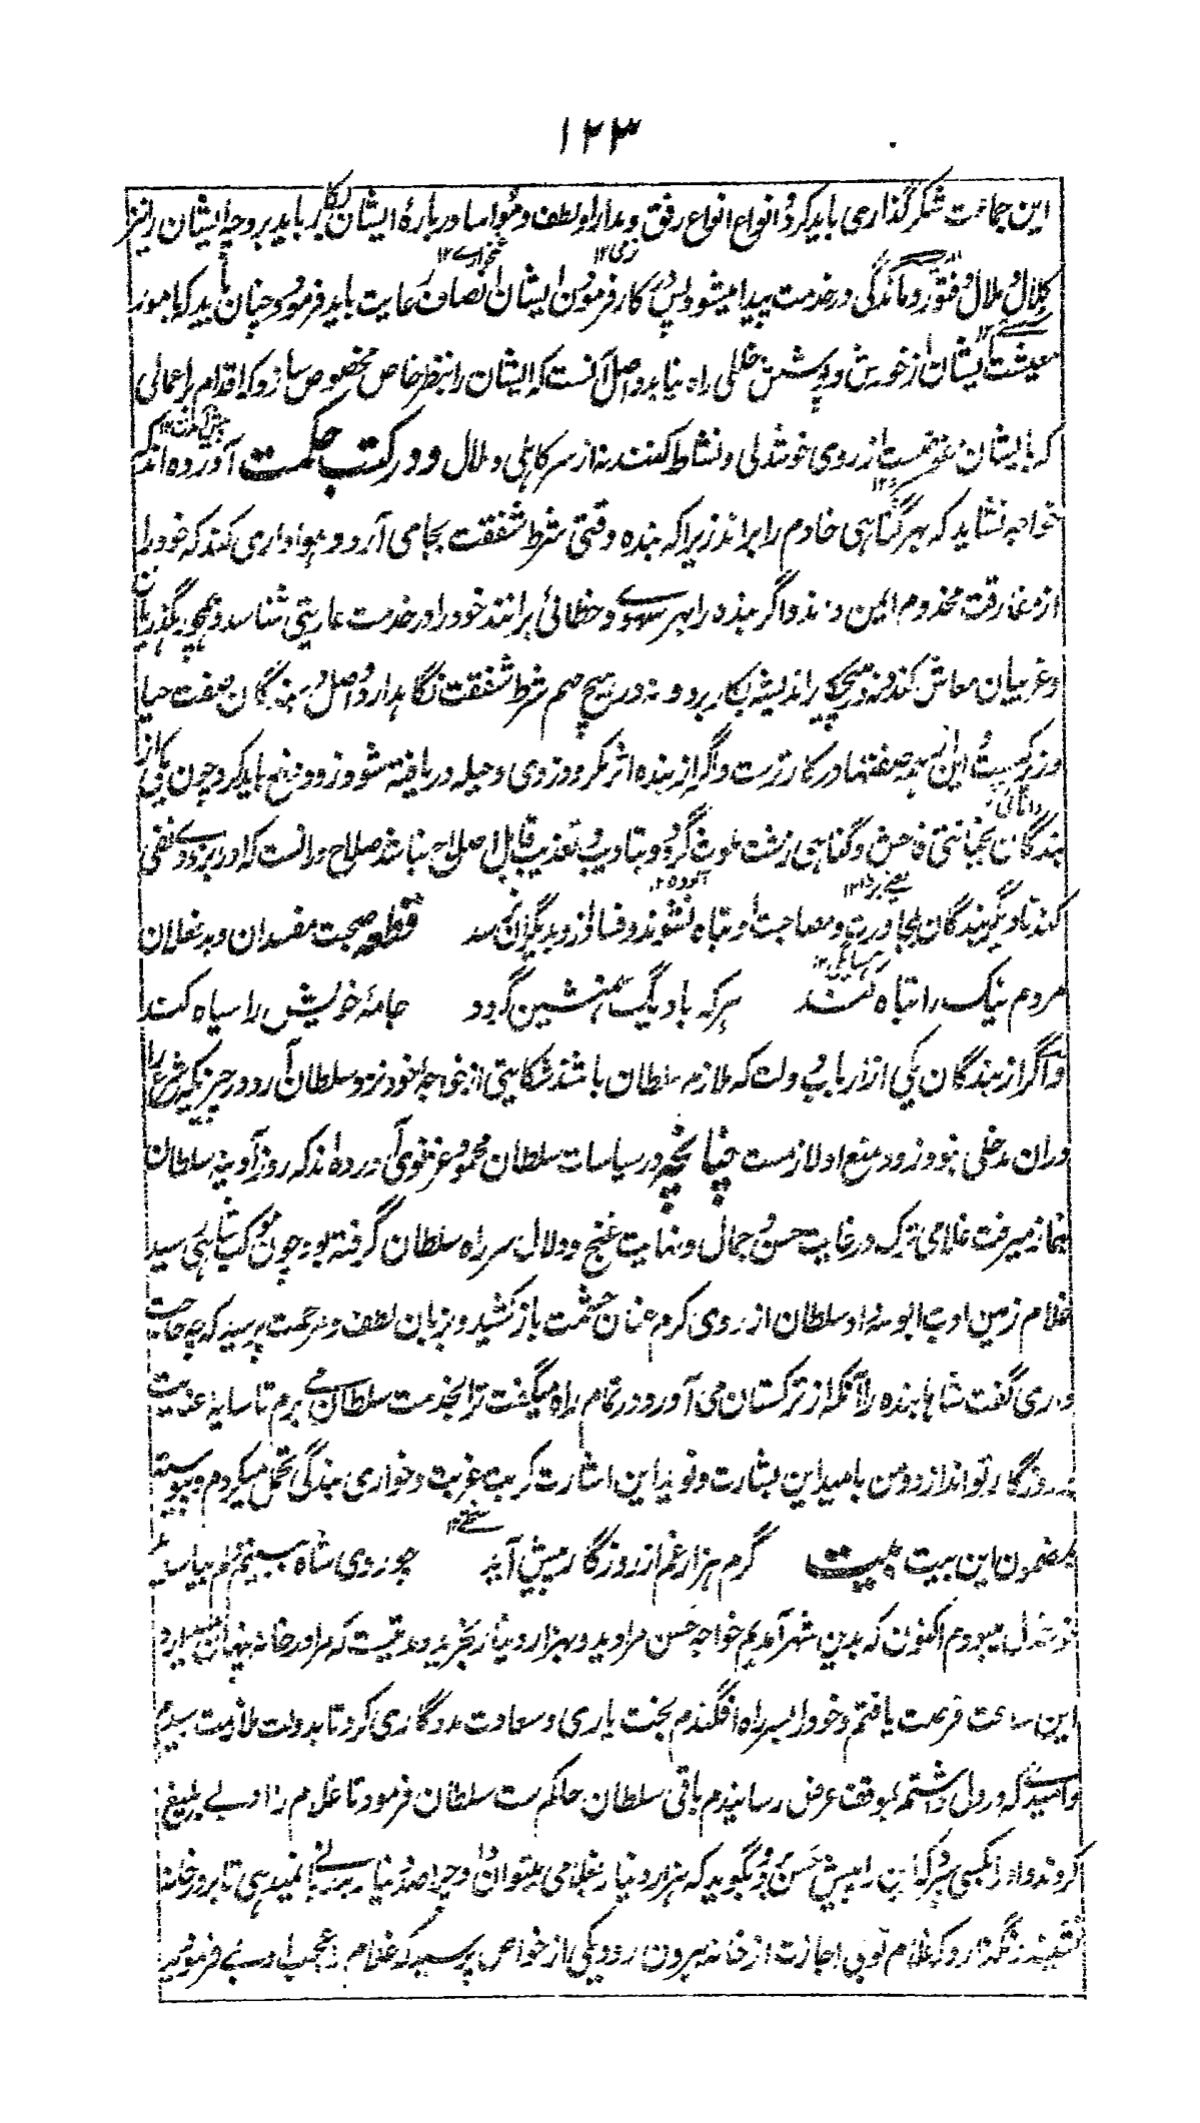 ۱۲۳
این جماعت شکرگذاری باید کرد و انواع رفق و مدارا و لطف و مواسا دربارهٔ ایشان بکار باید برد چه ایشان را نیز
نرمی۱۲ غمخواری۱۲
کلال و ملال و فتور و ماندگی در خدمت پیدا میشود پس در کار فرمودن ایشان انصاف رعایت باید فرمود و چنان باید که امور
معیشت ایشان از خورش و پوشش خللی راه نیابد و اصل آنست که ایشان را بنظر خاص مخصوص سازد که اقدام بر اعمالی
که بایشان مفوضست از روی خوشدلی و نشاط کنند نه از سر کاهلی و ملال و در کتب حکمت آورده اند که
خواجه نشاید که بهر گناهی خادم را براند زیرا که بنده وقتی شرط شفقت بجا می آرد و هواداری کند که خود را
از مفارقت مخدوم ایمن داند و اگر بنده را بهر سهوی و خطائی برانند خود را در خدمت عاریتی شناسد و همچو رهگذریان
و غریبان معاش کند و نه در هیچ کار اندیشه بکار برد و نه در هیچ مهم شرط شفقت نگاهدارد و اصل در بندگان صفت حیا
و زیرکیست این همه صفتها در کارترست و اگر از بنده اثر مکر و دزدی و حیله دریافته شود زود دفع باید کرد و چون یکی از
بندگان بخیانتی فاحش و گناهی زشت ملوث گردد و بتادیب و تعذیب قابل اصلاح نباشد صلاح در آنست که او را بزودی نفی
آلوده ۱۲
کند تا دیگر بندگان بمجاورت و مصاحبت او تباه نشوند و فساد از و بدیگران نرسد قطعه صحبت مفسدان و بدفعلان
همسایگی ۱۲
مردم نیک را تباه کند هر که با دیگ همنشین گردد جامهٔ خویش را سیاه کند
و اگر از بندگان یکی از ارباب دولت که ملازم سلطان باشند شکایتی از خواجهٔ خود نزد سلطان آرد و در چیزیکه شرع را
دران مدخلی نبود زود منع او لازمست چنانچه در سیاسات سلطان محمود غزنوی آورده اند که روز آدینه سلطان
بنماز میرفت غلامی ترک در غایت حسن و جمال و نهایت غنج و دلال سر راه سلطان گرفته بود چون موکب شاهی رسید
غلام زمین ادب ببوسه داد سلطان از روی کرم عنان حشمت باز کشید و بزبان لطف و مرحمت پرسید که چه حاجت
داری گفت شاها بنده را آنکه از ترکستان می آورد در تمام راه میگفت ترا بخدمت سلطان می برم تا سایه عنایت
بر روزگار تو اندازد و من بامید این بشارت و نوید این اشارت کربت غربت و خواری بندگی تحمل میکردم و پیوسته
سختی۱۲
بمضمون این بیت بیت گرم هزار غم از روزگار پیش آید چو روی شاه ببینم غمم بپایان آید
خوشدل میبودم اکنون که بدین شهر آمدیم خواجه حسن مرا دید و بهزار دینار بخرید و مدتیست که مرا در خانه پنهان میدارد
این ساعت فرصت یافتم و خود را بسر راه افگندم بخت یاری و سعادت مددگاری کرد تا بدولت ملازمت رسیدم
و امیدی که در دل داشتم بموقف عرض رسانیدم باقی سلطان حاکم ست سلطان فرمود تا غلام را ادبی بلیغ
کردند و او را بکسی سپرد که این را پیش حسن برد و بگوید که هزار دینار بغلامی میتوان داد چرا صد دینار بدربانی نمیدهی تا بر در خانه
نشیند و نگذارد که غلام تو بی اجازت از خانه بیرون رود یکی از خواص پرسید که غلام را عجب ادبی فرمودید